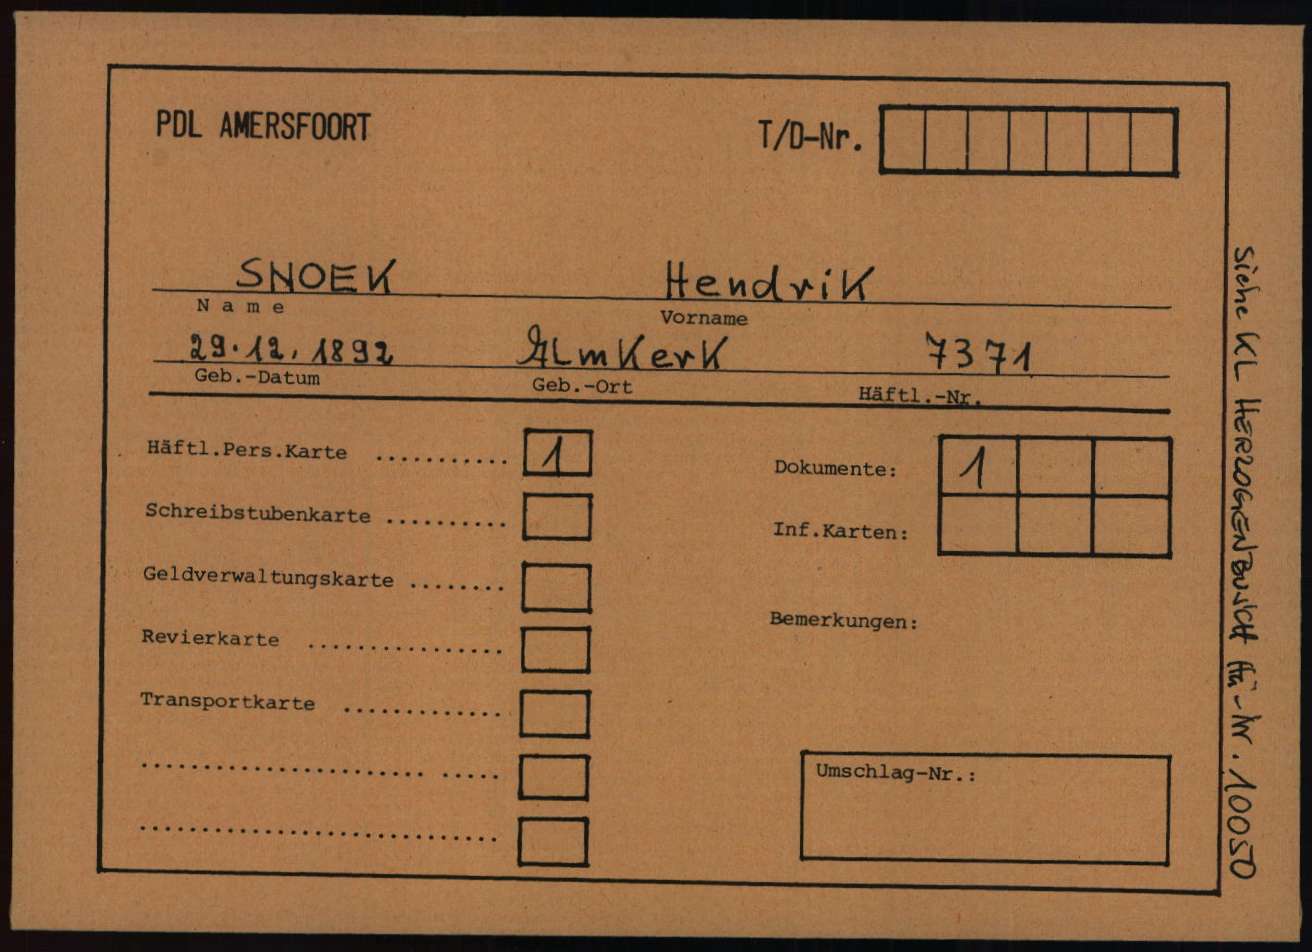 PDL AMERSFOORT
T/D-Nr.
SNOEK Hendrik
Name Vorname
29.12.1892 Almkerk 7371
Geb.-Datum Geb.-Ort Häftl.-Nr.
Häftl.Pers.Karte .......... 1
Schreibstubenkarte ..........
Geldverwaltungskarte ........
Revierkarte ................
Transportkarte .............
Dokumente: 1
Inf.Karten:
Bemerkungen:
Umschlag-Nr.:
Siehe KL HERZOGENBUSCH Hä-Nr. 10050